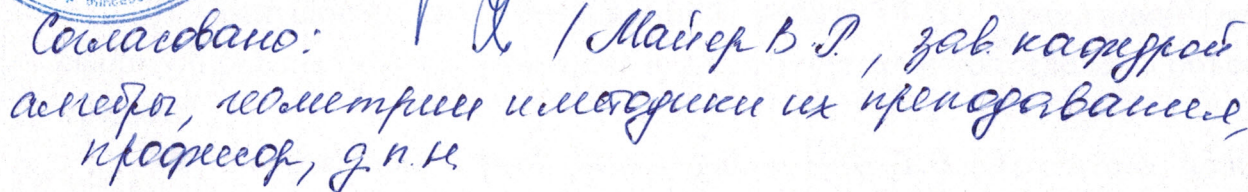 Согласовано: / Майер В.Р., зав. кафедрой
алгебры, геометрии и методики их преподавания,
профессор, д.п.н.